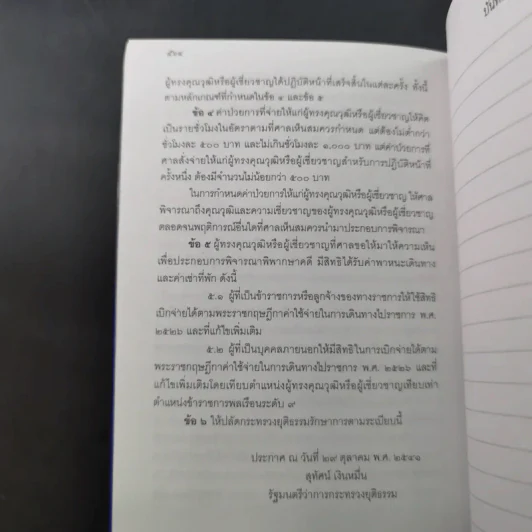 ผู้ทรงคุณวุฒิหรือผู้เชี่ยวชาญได้ปฏิบัติหน้าที่เสร็จสิ้นในแต่ละครั้ง ทั้งนี้
ตามหลักเกณฑ์ที่กำหนดในข้อ ๔ และข้อ ๕
ข้อ ๔ ค่าป่วยการที่จ่ายให้แก่ผู้ทรงคุณวุฒิหรือผู้เชี่ยวชาญให้คิด
เป็นรายชั่วโมงในอัตราตามที่ศาลเห็นสมควรกำหนด แต่ต้องไม่ต่ำกว่า
ชั่วโมงละ ๕๐๐ บาท และไม่เกินชั่วโมงละ ๑,๐๐๐ บาท แต่ค่าป่วยการที่
ศาลสั่งจ่ายให้แก่ผู้ทรงคุณวุฒิหรือผู้เชี่ยวชาญสำหรับการปฏิบัติหน้าที่
ครั้งหนึ่ง ต้องมีจำนวนไม่น้อยกว่า ๕๐๐ บาท
ในการกำหนดค่าป่วยการให้แก่ผู้ทรงคุณวุฒิหรือผู้เชี่ยวชาญ ให้ศาล
พิจารณาถึงคุณวุฒิและความเชี่ยวชาญของผู้ทรงคุณวุฒิหรือผู้เชี่ยวชาญ
ตลอดจนพฤติการณ์อื่นใดที่ศาลเห็นสมควรนำมาประกอบการพิจารณา
ข้อ ๕ ผู้ทรงคุณวุฒิหรือผู้เชี่ยวชาญที่ศาลขอให้มาให้ความเห็น
เพื่อประกอบการพิจารณาพิพากษาคดี มีสิทธิได้รับค่าพาหนะเดินทาง
และค่าเช่าที่พัก ดังนี้
๕.๑ ผู้ที่เป็นข้าราชการหรือลูกจ้างของทางราชการให้ใช้สิทธิ
เบิกจ่ายได้ตามพระราชกฤษฎีกาค่าใช้จ่ายในการเดินทางไปราชการ พ.ศ.
๒๕๒๖ และที่แก้ไขเพิ่มเติม
๕.๒ ผู้ที่เป็นบุคคลภายนอกให้มีสิทธิในการเบิกจ่ายได้ตาม
พระราชกฤษฎีกาค่าใช้จ่ายในการเดินทางไปราชการ พ.ศ. ๒๕๒๖ และที่
แก้ไขเพิ่มเติมโดยเทียบตำแหน่งผู้ทรงคุณวุฒิหรือผู้เชี่ยวชาญเทียบเท่า
ตำแหน่งข้าราชการพลเรือนระดับ ๙
ข้อ ๖ ให้ปลัดกระทรวงยุติธรรมรักษาการตามระเบียบนี้
ประกาศ ณ วันที่ ๒๙ ตุลาคม พ.ศ. ๒๕๔๑
สุทัศน์ เงินหมื่น
รัฐมนตรีว่าการกระทรวงยุติธรรม